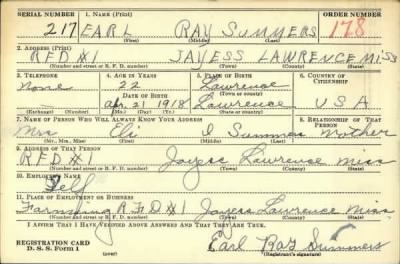 SERIAL NUMBER 1. NAME (Print) ORDER NUMBER
217 EARL RAY SUMMERS 178
(First) (Middle) (Last)
2. ADDRESS (Print)
RFD #1 JAYESS LAWRENCE MISS
(Number and street or R. F. D. number) (Town) (County) (State)
3. TELEPHONE 4. AGE IN YEARS 5. PLACE OF BIRTH 6. COUNTRY OF CITIZENSHIP
None 22 Lawrence
DATE OF BIRTH (Town or county)
Apr. 21 1918 Lawrence USA
(Exchange) (Number) (Mo.) (Day) (Yr.) (State or country)
7. NAME OF PERSON WHO WILL ALWAYS KNOW YOUR ADDRESS 8. RELATIONSHIP OF THAT PERSON
Mrs Eli I Summers Mother
(Mr., Mrs., Miss) (First) (Middle) (Last)
9. ADDRESS OF THAT PERSON
RFD #1 Jayess Lawrence Miss
(Number and street or R. F. D. number) (Town) (County) (State)
10. EMPLOYER'S NAME
Self
11. PLACE OF EMPLOYMENT OR BUSINESS
Farming RFD #1 Jayess Lawrence Miss
(Number and street or R. F. D. number) (Town) (County) (State)
I AFFIRM THAT I HAVE VERIFIED ABOVE ANSWERS AND THAT THEY ARE TRUE.
REGISTRATION CARD
D. S. S. Form 1 (over) Earl Ray Summers
(Registrant's signature)